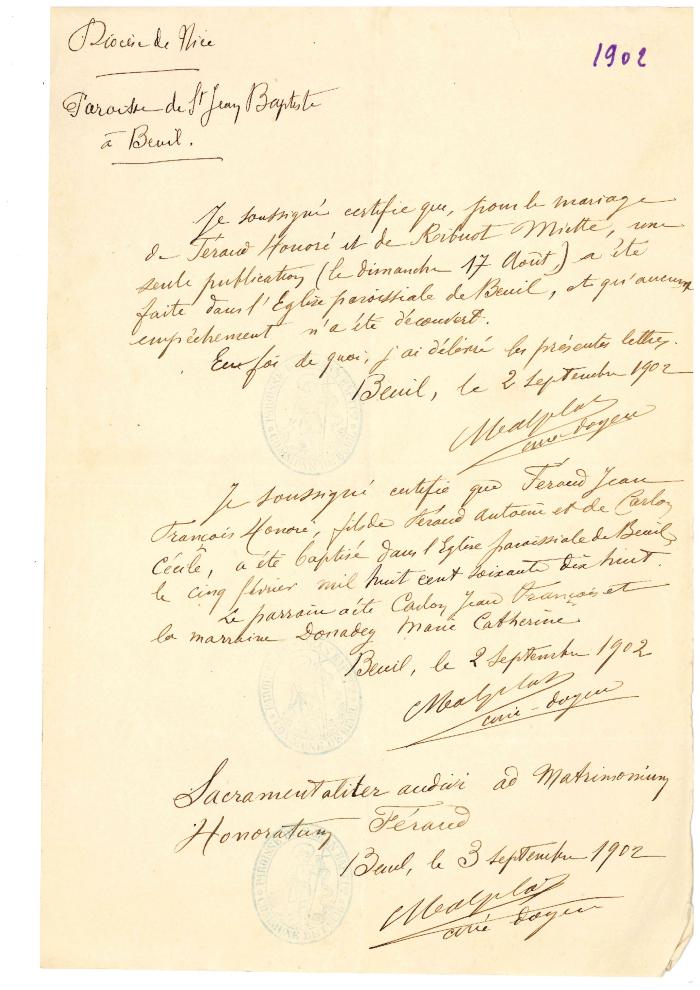 Diocèse de Nice
1902
Paroisse de St Jean Baptiste
à Beuil.
Je soussigné certifie que, pour le mariage
de Féraud Honoré et de Miette, une
seule publication (le dimanche 17 Août) a été
faite dans l'Eglise paroissiale de Beuil, et qu'aucun
empêchement n'a été découvert.
En foi de quoi, j'ai délivré les présentes lettres.
Beuil, le 2 septembre 1902
curé-doyen
Je soussigné certifie que Féraud Jean
François Honoré, fils de Féraud Antoine et de Carlon
Cécile, a été baptisé dans l'Eglise paroissiale de Beuil
le cinq février mil huit cent soixante dix huit.
Le parrain a été Carlon Jean François et
la marraine Donadey Marie Catherine
Beuil, le 2 septembre 1902
curé-doyen
Sacramentaliter audivi ad Matrimonium
Honoratum Féraud
Beuil, le 3 septembre 1902
curé doyen